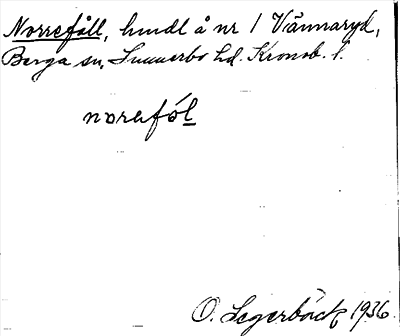 Norrefåll, hmdl å nr 1 Vännaryd,
Berga sn, Sunnerbo hd. Kronob. l.
norefól
O. Segerbäck 1936.